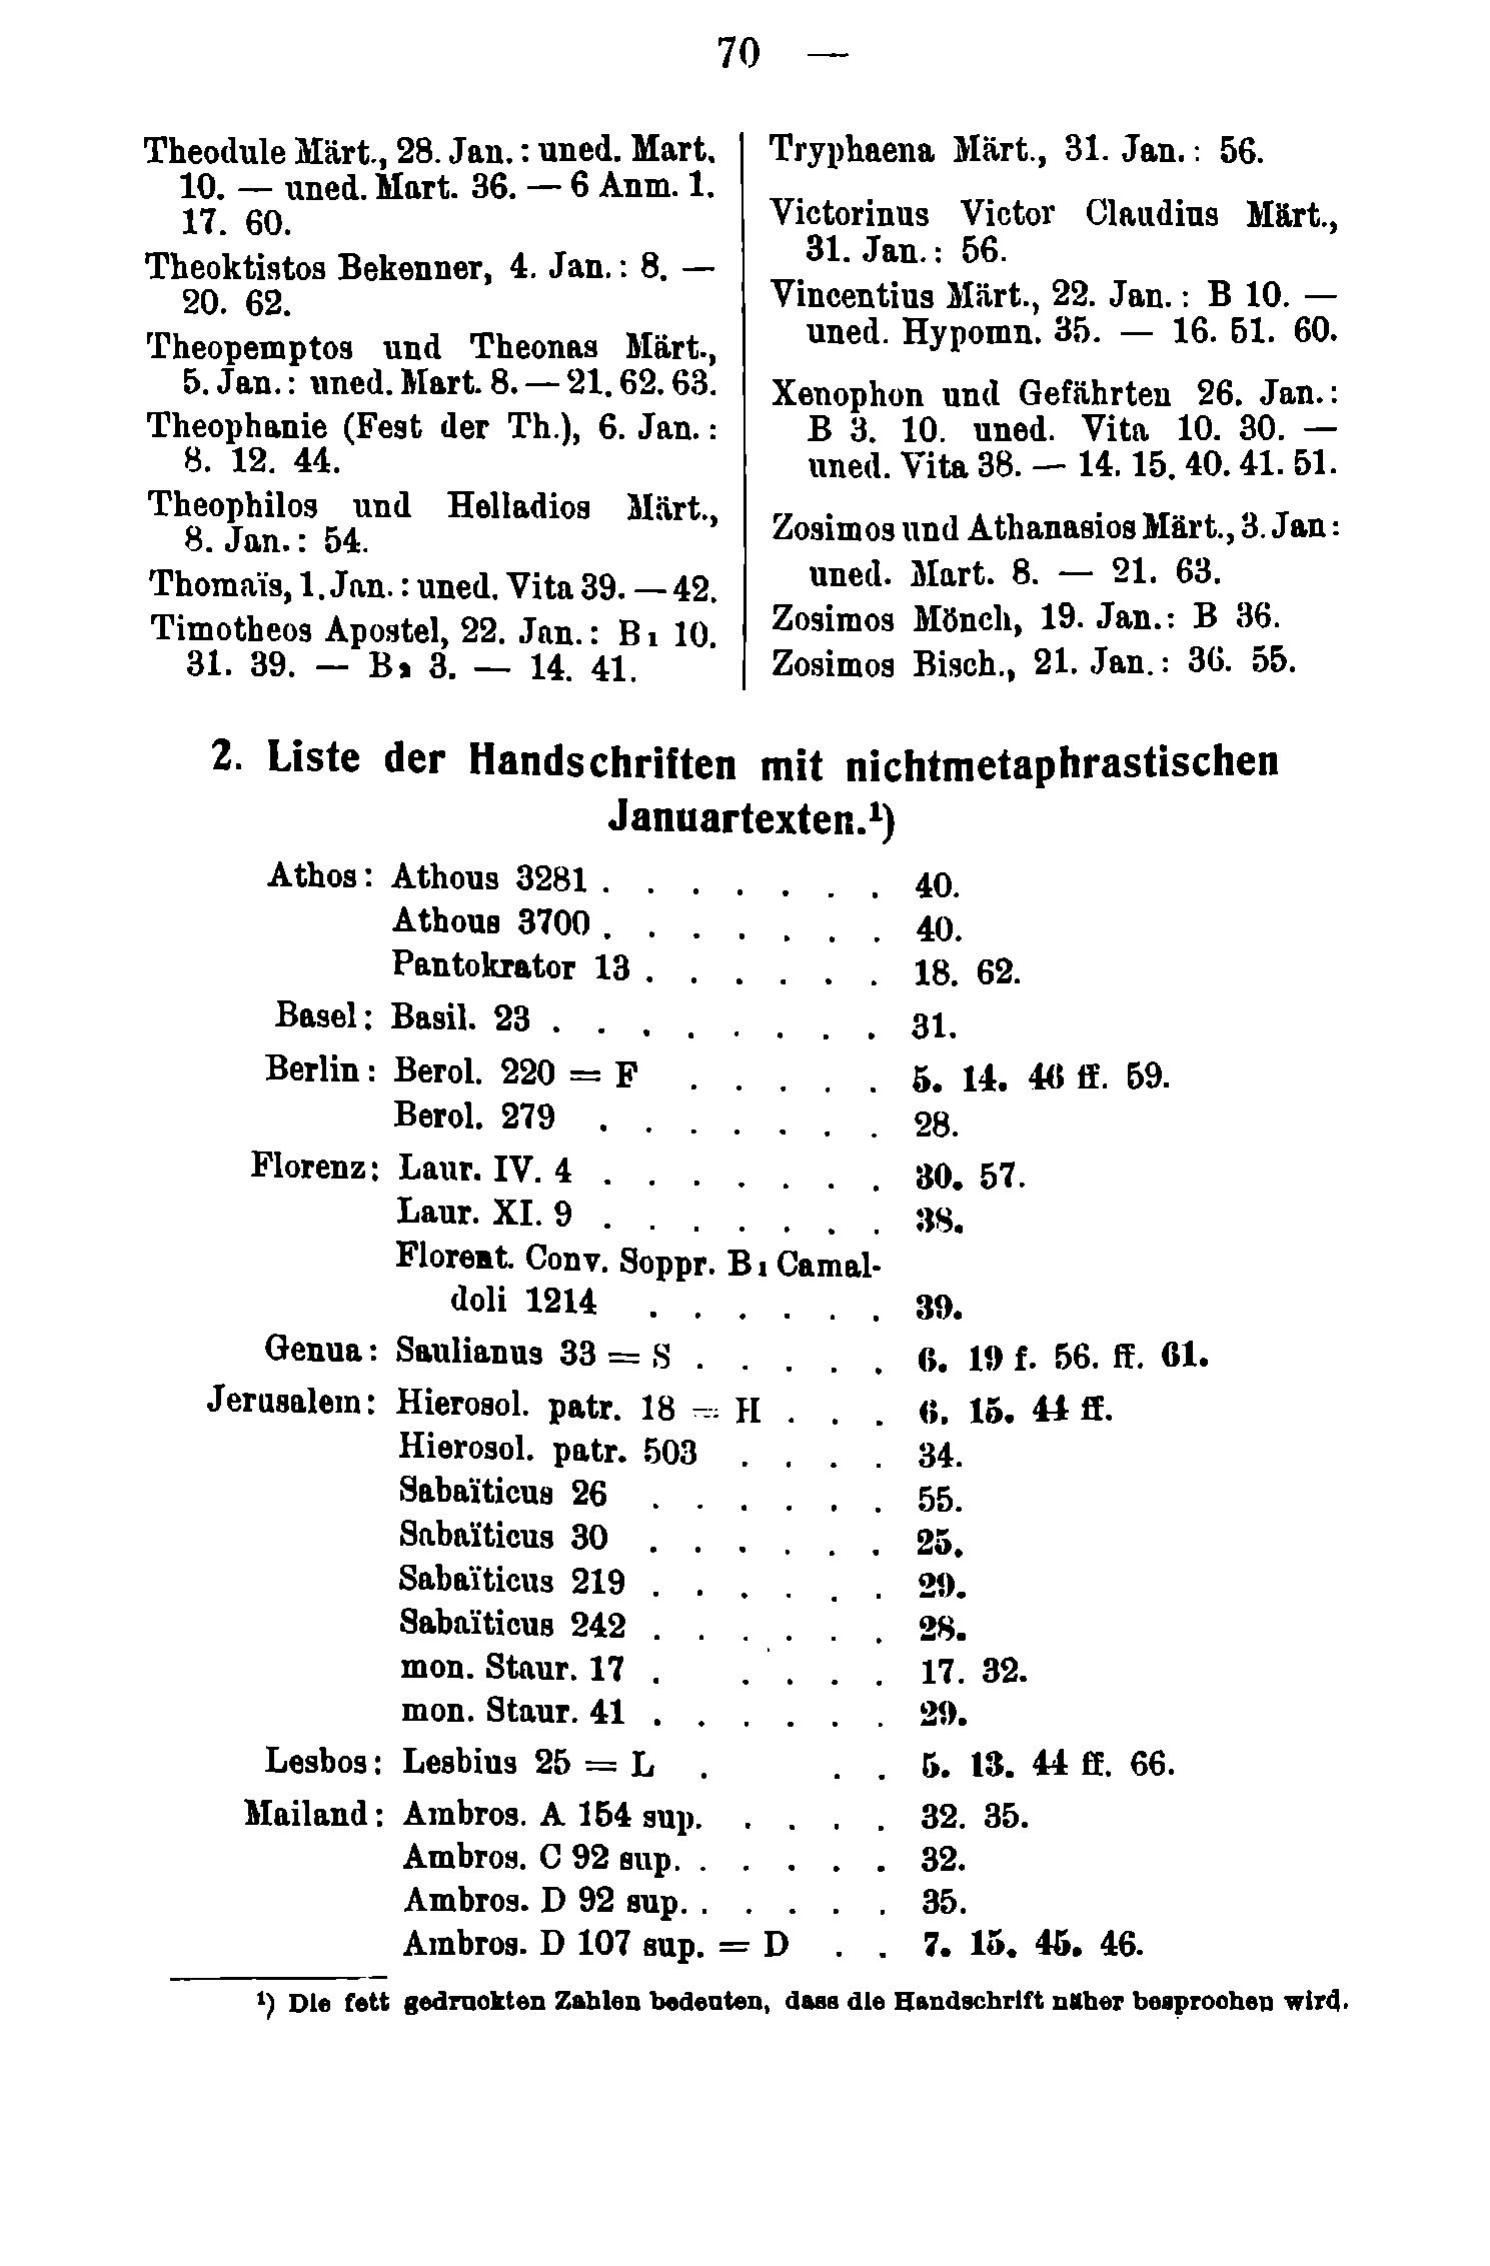 70 —
Theodule Märt., 28. Jan.: uned. Mart.
10. — uned. Mart. 36. — 6 Anm. 1.
17. 60.
Theoktistos Bekenner, 4. Jan.: 8. —
20. 62.
Theopemptos und Theonas Märt.,
5. Jan.: uned. Mart. 8. — 21. 62. 63.
Theophanie (Fest der Th.), 6. Jan.:
8. 12. 44.
Theophilos und Helladios Märt.,
8. Jan.: 54.
Thomaïs, 1. Jan.: uned. Vita 39. — 42.
Timotheos Apostel, 22. Jan.: B1 10.
31. 39. — B2 3. — 14. 41.
Tryphaena Märt., 31. Jan.: 56.
Victorinus Victor Claudius Märt.,
31. Jan.: 56.
Vincentius Märt., 22. Jan.: B 10. —
uned. Hypomn. 35. — 16. 51. 60.
Xenophon und Gefährten 26. Jan.:
B 3. 10. uned. Vita 10. 30. —
uned. Vita 38. — 14. 15. 40. 41. 51.
Zosimos und Athanasios Märt., 3. Jan:
uned. Mart. 8. — 21. 63.
Zosimos Mönch, 19. Jan.: B 36.
Zosimos Bisch., 21. Jan.: 36. 55.
2. Liste der Handschriften mit nichtmetaphrastischen
Januartexten.¹)
Athos: Athous 3281 . . . . . . . 40.
Athous 3700 . . . . . . . 40.
Pantokrator 13 . . . . . . 18. 62.
Basel: Basil. 23 . . . . . . . . 31.
Berlin: Berol. 220 = F . . . . . 5. 14. 46 ff. 59.
Berol. 279 . . . . . . . 28.
Florenz: Laur. IV. 4 . . . . . . . 30. 57.
Laur. XI. 9 . . . . . . . 38.
Florent. Conv. Soppr. B1 Camal-
doli 1214 . . . . . . 39.
Genua: Saulianus 33 = S . . . . . 6. 19 f. 56. ff. 61.
Jerusalem: Hierosol. patr. 18 = H . . . 6. 15. 44 ff.
Hierosol. patr. 503 . . . . 34.
Sabaïticus 26 . . . . . . 55.
Sabaïticus 30 . . . . . . 25.
Sabaïticus 219 . . . . . . 29.
Sabaïticus 242 . . . . . . 28.
mon. Staur. 17 . . . . . 17. 32.
mon. Staur. 41 . . . . . . 29.
Lesbos: Lesbius 25 = L . . . 5. 13. 44 ff. 66.
Mailand: Ambros. A 154 sup. . . . . 32. 35.
Ambros. C 92 sup. . . . . . 32.
Ambros. D 92 sup. . . . . . 35.
Ambros. D 107 sup. = D . . 7. 15. 45. 46.
¹) Die fett gedruckten Zahlen bedeuten, dass die Handschrift näher besprochen wird.